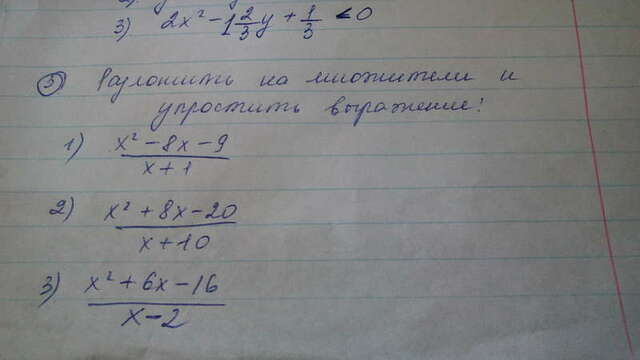 3) 2x² - 1 2/3 y + 1/3 < 0
5) Разложить на множители и
упростить выражение:
1) x² - 8x - 9 / x + 1
2) x² + 8x - 20 / x + 10
3) x² + 6x - 16 / x - 2